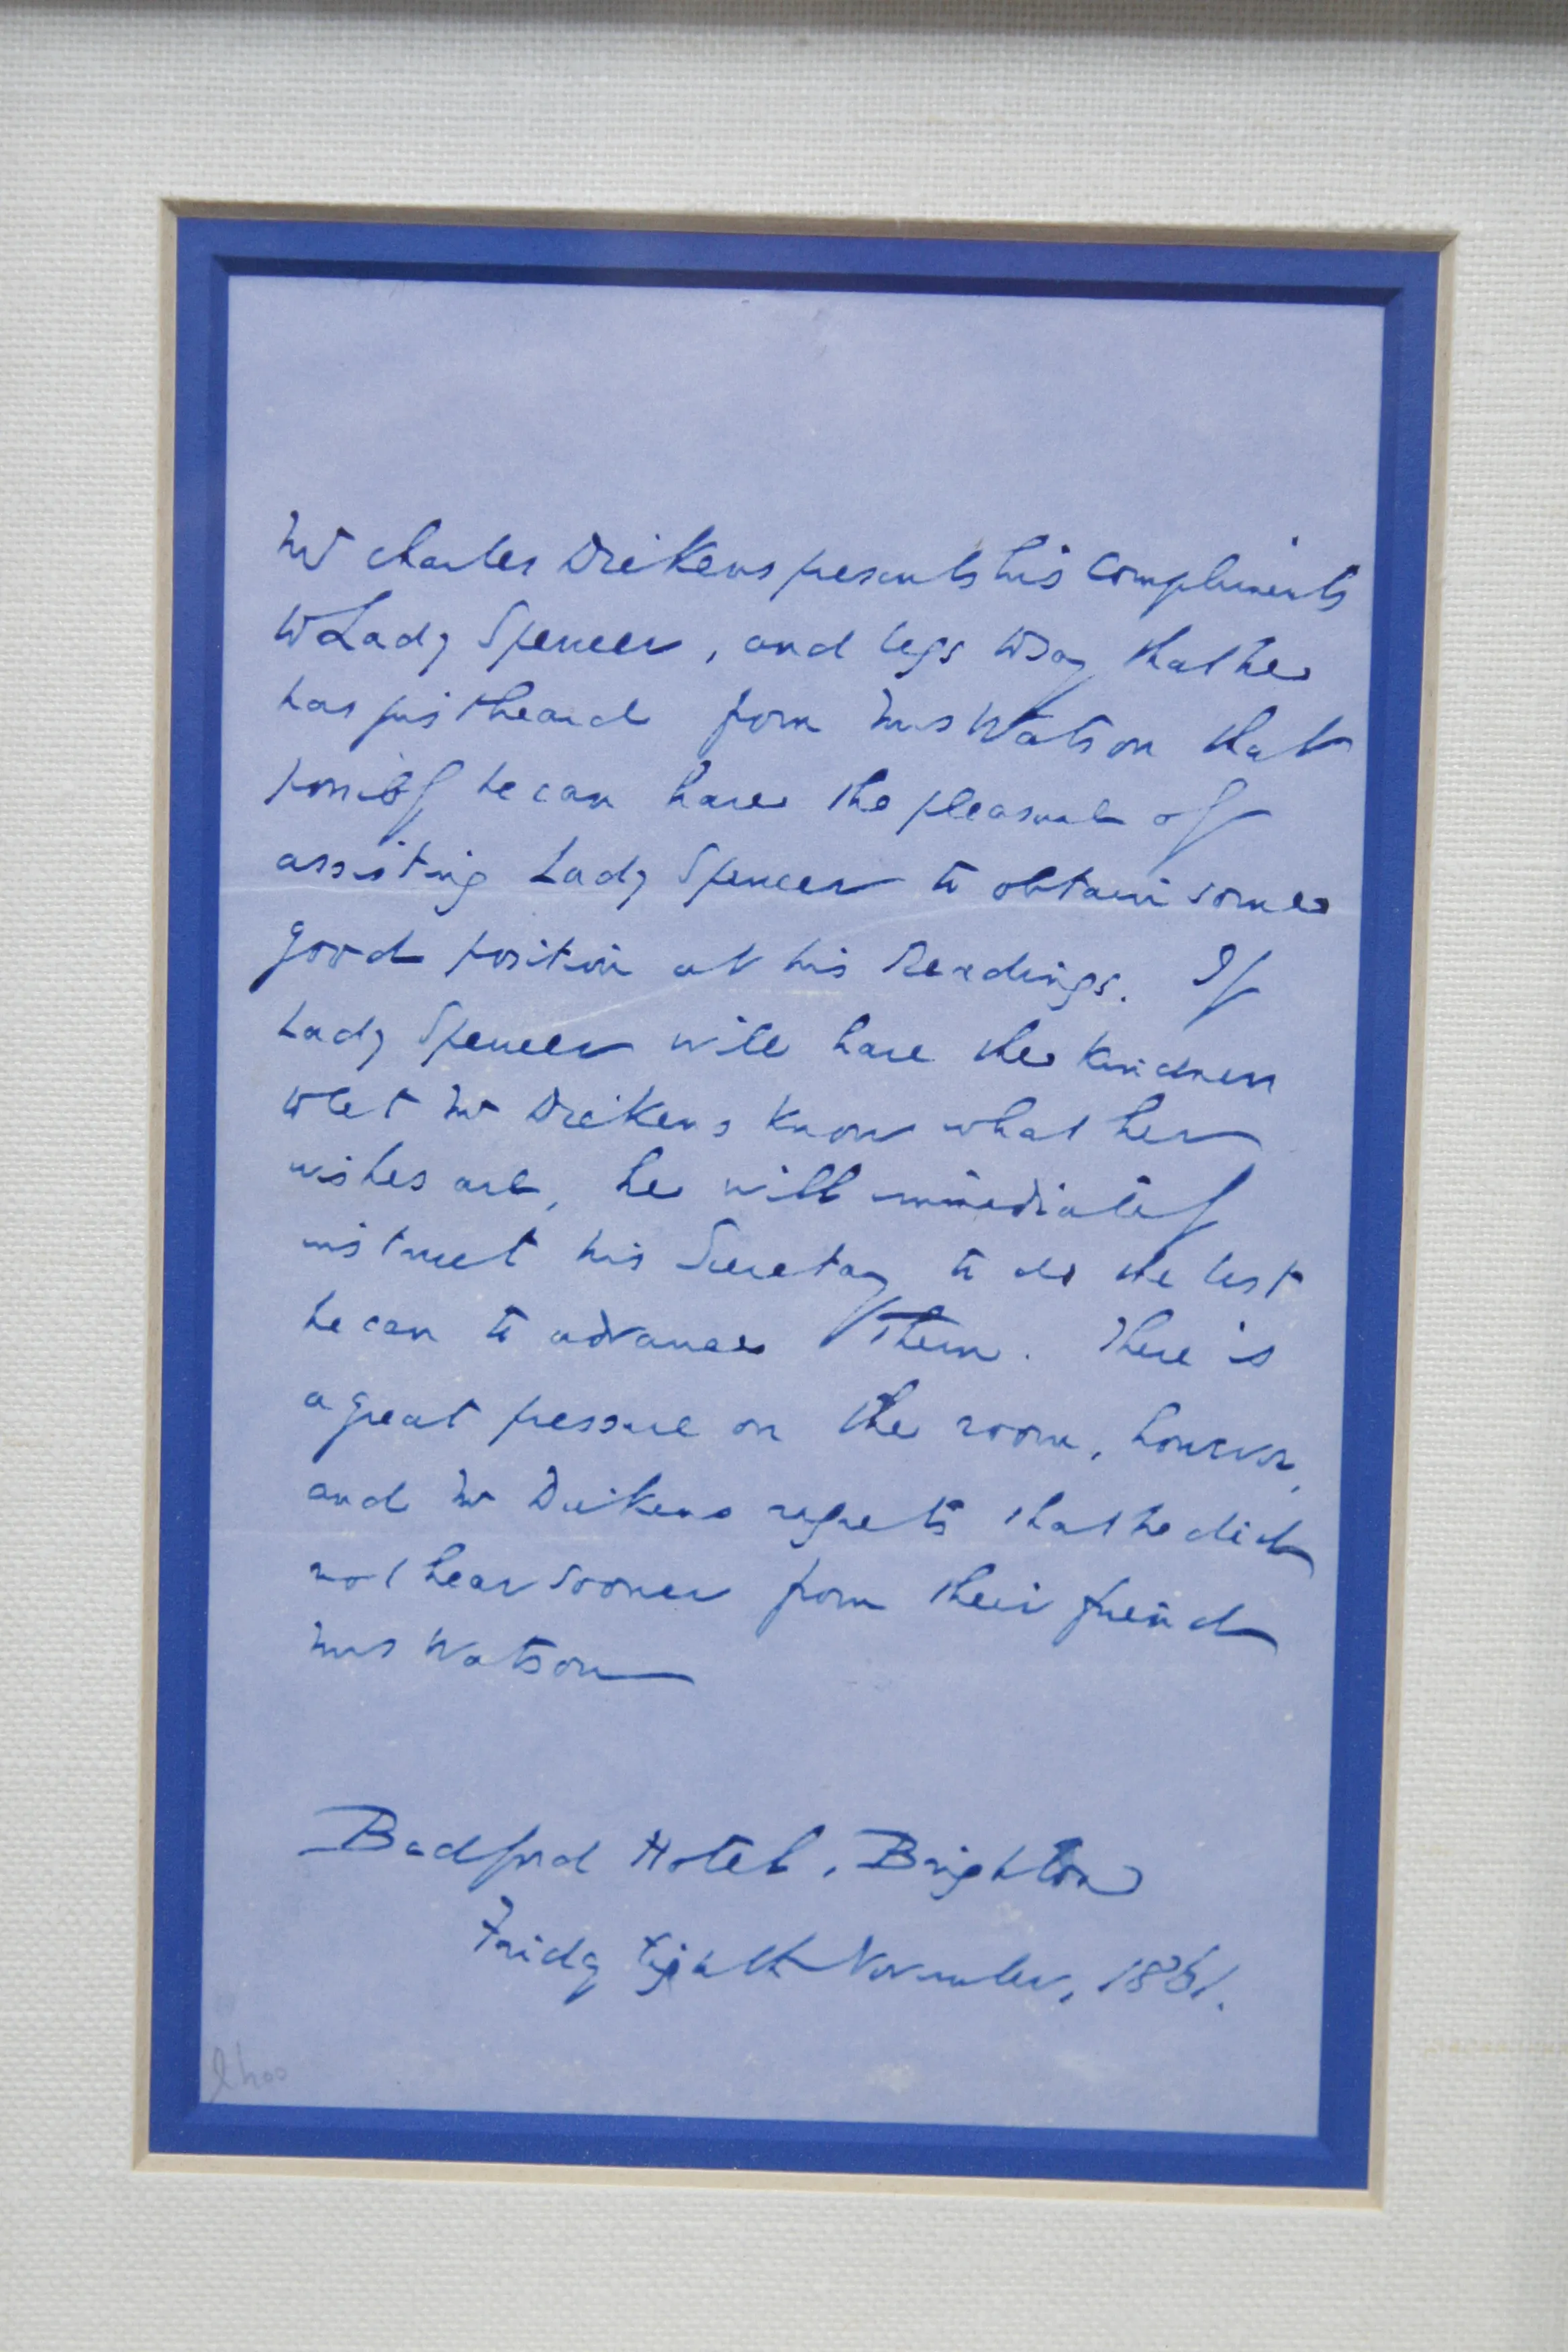 Mr Charles Dickens presents his compliments
to Lady Spencer, and begs to say that he
has just heard from Mrs Watson that
possibly he can have the pleasure of
assisting Lady Spencer to obtain some
good position at his Readings. If
Lady Spencer will have the kindness
to let Mr Dickens know what her
wishes are, he will immediately
instruct his Secretary to do the best
he can to advance them. There is
a great pressure on the room, however,
and Mr Dickens regrets that he did
not hear sooner from their friend
Mrs Watson
Bedford Hotel, Brighton
Friday Eighth November, 1861.